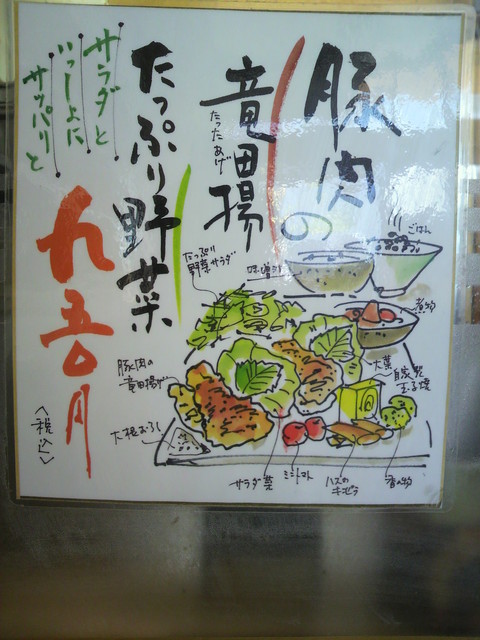 豚肉の
竜田揚
たつたあげ
たっぷり野菜
サラダと
いっしょに
サッパリと
九五〇円
〈税込〉
ごはん
味噌汁
煮物
たっぷり
野菜サラダ
大葉
自家製
玉子焼
豚肉の
竜田揚げ
大根おろし
サラダ菜
ミニトマト
ハスの
キンピラ
香の物